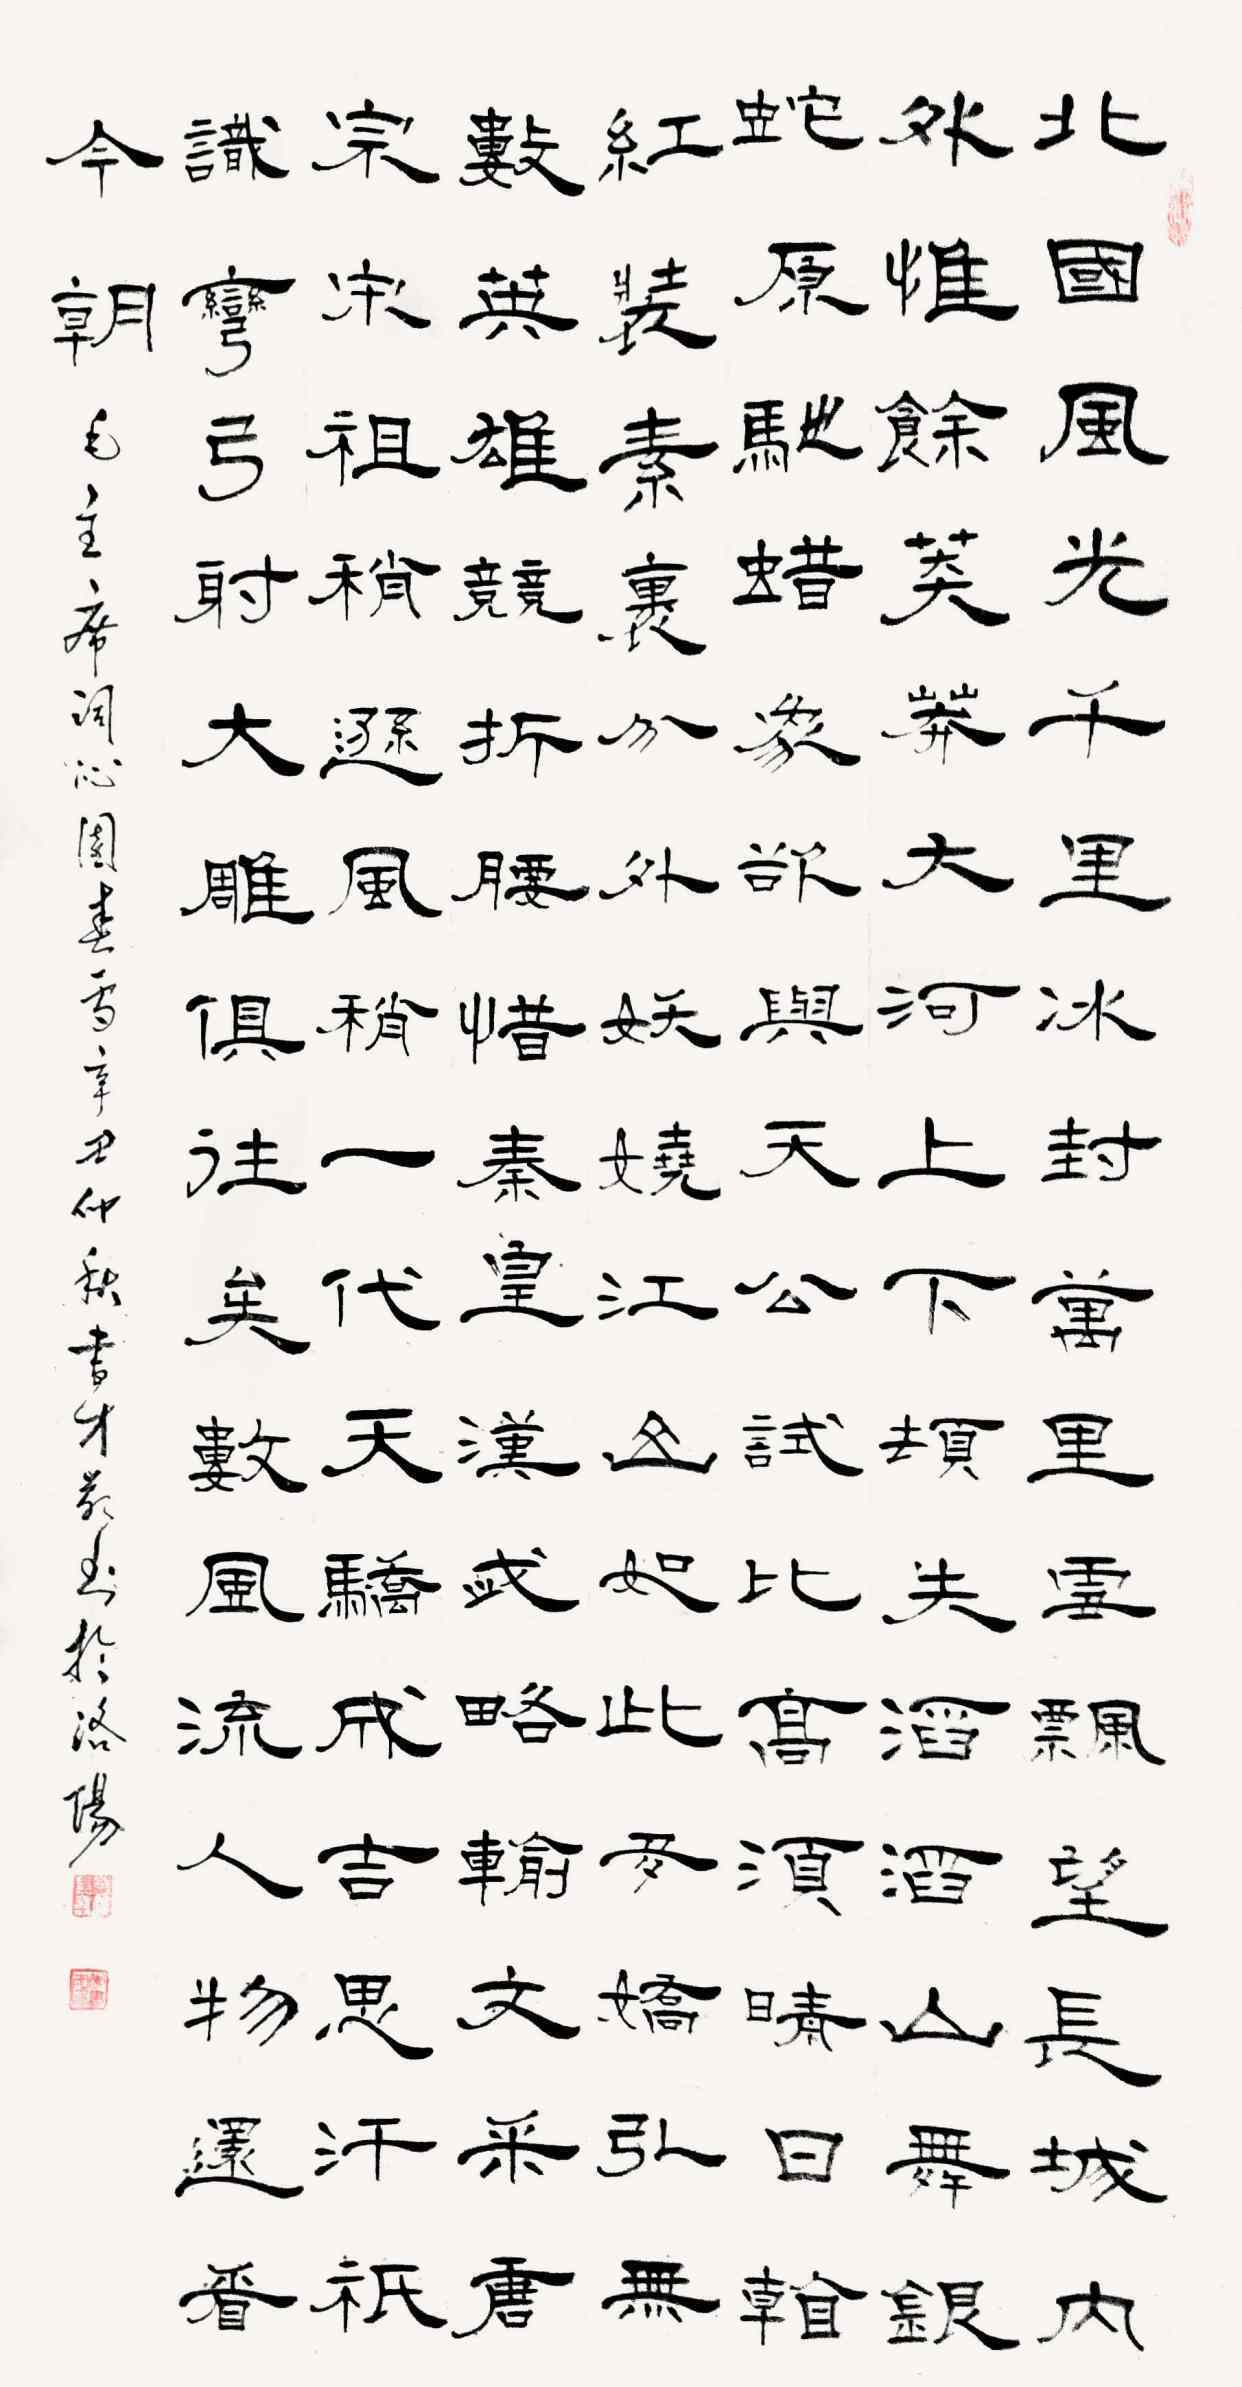 北國風光千里冰封萬里雲飄望長城內
外惟餘莽莽大河上下頓失滔滔山舞銀
蛇原馳蜡象欲與天公試比高須晴日看
紅裝素裹分外妖嬈江山如此多嬌引無
數英雄競折腰惜秦皇漢武略輸文采唐
宗宋祖稍遜風騷一代天驕成吉思汗祇
識彎弓射大雕俱往矣數風流人物還看
今朝
毛主席詞沁園春雪辛丑仲秋書於洛陽